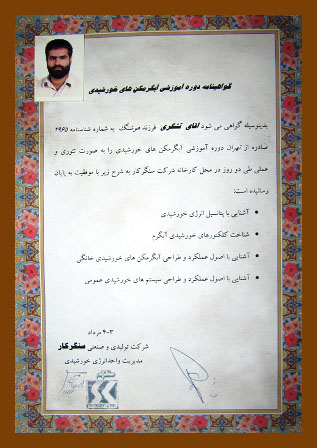 گواهینامه دوره آموزشی آبگرمکن های خورشیدی
بدینوسیله گواهی می شود آقای تشکری فرزند هوشنگ به شماره شناسنامه ۲۹۶۵
صادره از تهران، دوره آموزشی آبگرمکن های خورشیدی را به صورت تئوری و
عملی طی دو روز در محل کارخانه شرکت سنگرکار به شرح زیر با موفقیت به پایان
رسانیده است:
• آشنایی با پتانسیل انرژی خورشیدی
• شناخت کلکتورهای خورشیدی آبگرم
• آشنایی با اصول عملکرد و طراحی آبگرمکن های خورشیدی خانگی
• آشنایی با اصول عملکرد و طراحی سیستم های خورشیدی عمومی
۳-۴ مرداد
شرکت تولیدی و صنعتی سنگرکار
مدیریت واحد انرژی خورشیدی